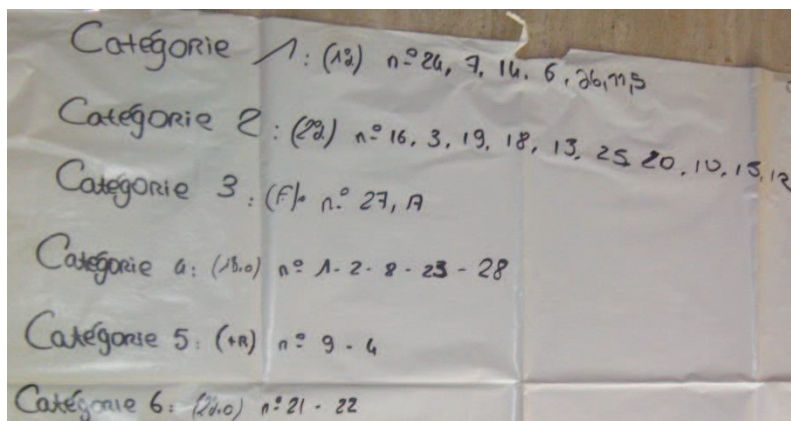 Catégorie 1 : (1º) nº 24, 7, 14, 6, 26, 11, 5
Catégorie 2 : (2º) nº 16, 3, 19, 18, 13, 25, 20, 10, 15, 12
Catégorie 3 : (F). nº 27, 17
Catégorie 4 : nº 1 - 2 - 8 - 23 - 28
Catégorie 5 : (+R) nº 9 - 4
Catégorie 6 : nº 21 - 22